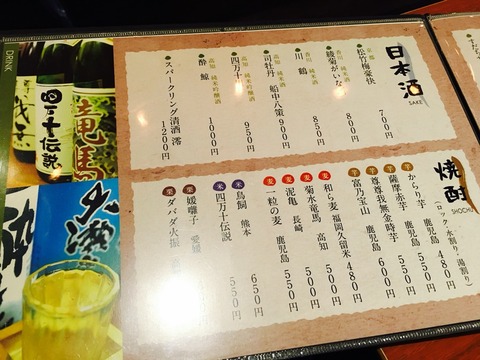 DRINK
日本酒
SAKE
京都
松竹梅豪快 700円
香川 純米酒
綾菊がいな 800円
香川 純米酒
川鶴 850円
高知 純米吟醸酒
司牡丹 船中八策 900円
高知 純米吟醸酒
四万十 950円
高知 純米吟醸酒
酔鯨 1000円
スパークリング清酒 澪 1200円
焼酎
SHOCHU
(ロック・水割り・湯割り)
芋 からり芋 鹿児島 480円
芋 薩摩赤芋 鹿児島 550円
芋 尊尊我無金時芋 鹿児島 600円
芋 富乃宝山 鹿児島 600円
麦 和ら麦 福岡久留米 480円
麦 菊水竜馬 高知 500円
麦 泥亀 長崎 500円
麦 一粒の麦 鹿児島 550円
米 鳥飼 熊本 650円
米 四万十伝説 550円
栗 媛囃子 愛媛
栗 ダバダ火振
四万十伝説
竜馬